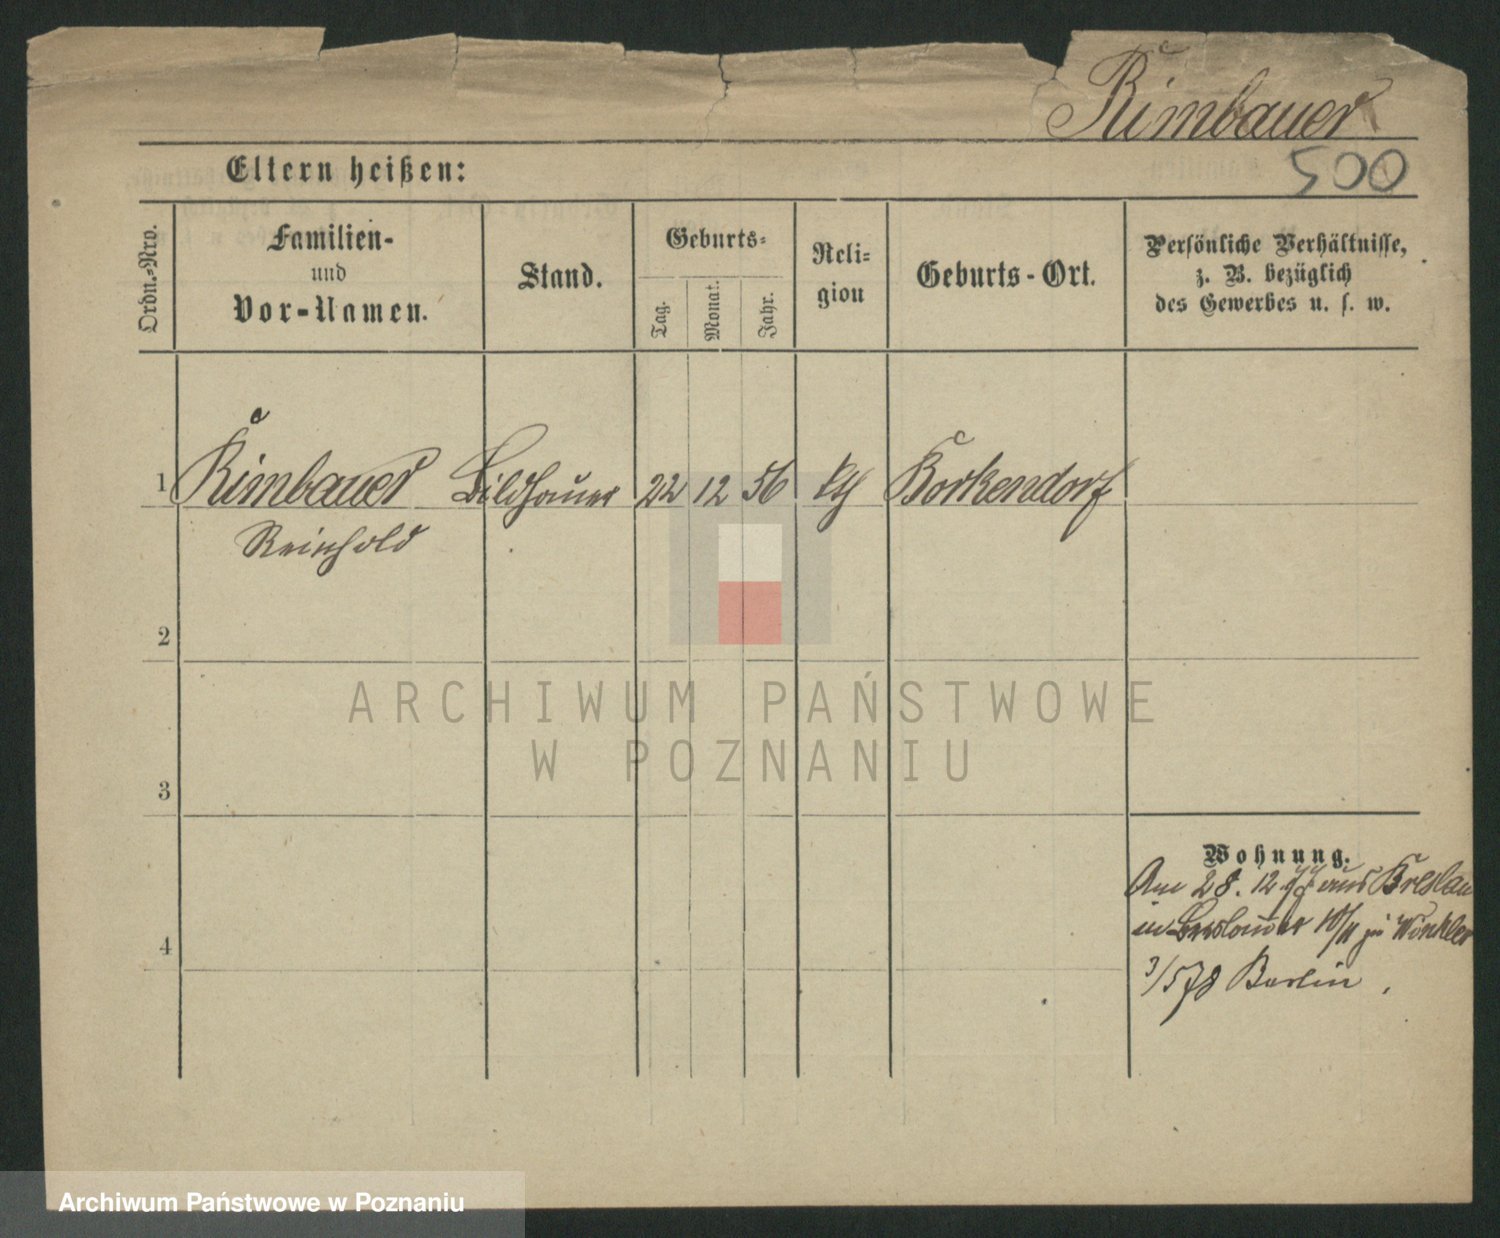 Rimbauer
500
Eltern heißen:
Ordn.-Nro.
Familien-
und
Vor-Namen.
Stand.
Geburts-
Tag.
Monat.
Jahr.
Reli-
gion
Geburts-Ort.
Persönliche Verhältnisse,
z. B. bezüglich
des Gewerbes u. s. w.
1 Rimbauer Bildhauer 22 12 56 kth Borkendorf
Reinhold
2
3
4
Wohnung.
Am 28. 12 77 aus Breslau
in 10/11 zu Winkler
3/5 78 Berlin.
ARCHIWUM PAŃSTWOWE
W POZNANIU
Archiwum Państwowe w Poznaniu